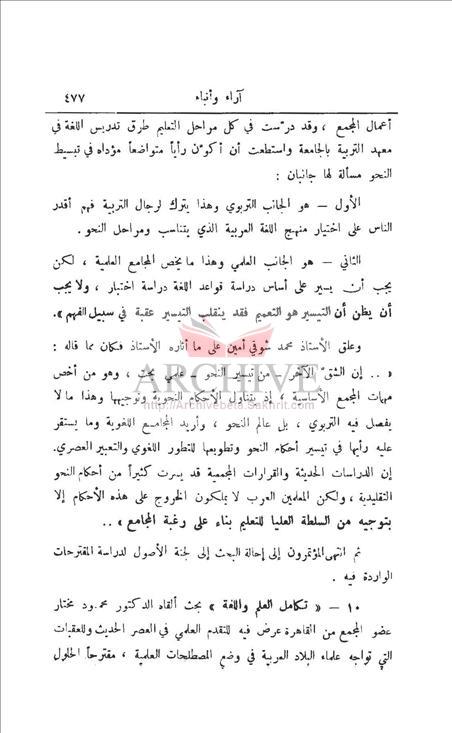 آراء وأنباء ٤٧٧
أعمال المجمع ، وقد درّست في كل مراحل التعليم طرق تدريس اللغة في
معهد التربية بالجامعة واستطعت أن أكوّن رأياً متواضعاً مؤداه في تبسيط
النحو مسألة لها جانبان :
الأول – هو الجانب التربوي وهذا يترك لرجال التربية فهم أقدر
الناس على اختيار منهج اللغة العربية الذي يتناسب ومراحل النحو .
الثاني – هو الجانب العلمي وهذا ما يخص المجامع العلمية ، لكن
يجب أن يسير على أساس دراسة قواعد اللغة دراسة اختبار ، ولا يجب
أن يظن أن التيسير هو التعميم فقد ينقلب التيسير عقبة في سبيل الفهم » .
وعلق الأستاذ محمد شوقي أمين على ما أثاره الأستاذ فكان مما قاله :
« .. إن الشق الآخر – من تيسير النحو – علمي بحت ، وهو من أخص
ARCHIVE
مهمات المجمع الأساسية ، إذ يتناول الأحكام النحوية وتوجيهها وهذا ما لا
http://Archivebeta.Sakhrit.com
يفصل فيه التربوي ، بل عالم النحو ، وأريد المجامع اللغوية وما يستقر
عليه رأيها في تيسير أحكام النحو وتطويعها للتطور اللغوي والتعبير العصري.
إن الدراسات الحديثة والقرارات المجمعية قد يسرت كثيراً من أحكام النحو
التقليدية ، ولكن المعلمين العرب لا يملكون الخروج على هذه الأحكام إلا
بتوجيه من السلطة العليا للتعليم بناء على رغبة المجامع » ..
ثم انتهى المؤتمرون إلى إحالة البحث إلى لجنة الأصول لدراسة المقترحات
الواردة فيه .
١٠ – « تكامل العلم واللغة » بحث ألقاه الدكتور محمود مختار
عضو المجمع من القاهرة عرض فيه للتقدم العلمي في العصر الحديث وللعقبات
التي تواجه علماء البلاد العربية في وضع المصطلحات العلمية ، مقترحاً الحلول